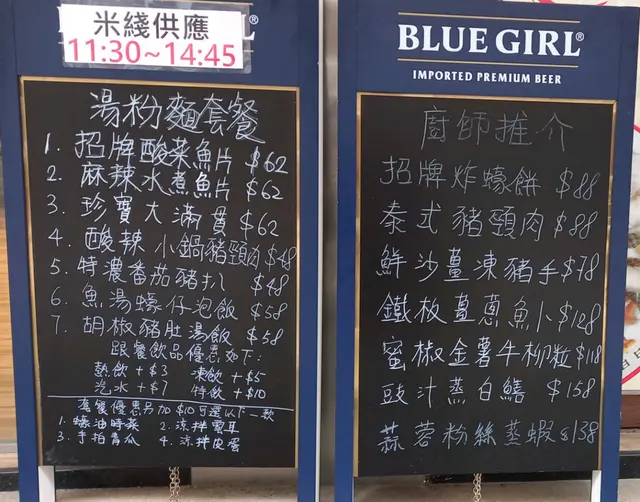 米綫供應
11:30~14:45
湯粉麵套餐
1. 招牌酸菜魚片 $62
2. 麻辣水煮魚片 $62
3. 珍寶大滿貫 $62
4. 酸辣小鍋豬頸肉 $48
5. 特濃番茄豬扒 $48
6. 魚湯蠔仔泡飯 $58
7. 胡椒豬肚湯飯 $58
跟餐飲品優惠如下:
熱飲 +$3 凍飲 +$5
汽水 +$7 特飲 +$10
套餐優惠另加$10可選以下一款
1. 蠔油時菜 2. 涼拌雲耳
3. 手拍青瓜 4. 涼拌皮蛋
BLUE GIRL®
IMPORTED PREMIUM BEER
廚師推介
招牌炸蠔餅 $88
泰式豬頸肉 $88
鮮沙薑凍豬手 $78
鐵板薑蔥魚卜 $128
蜜椒金薯牛柳粒 $118
豉汁蒸白鱔 $158
蒜蓉粉絲蒸蝦 $138